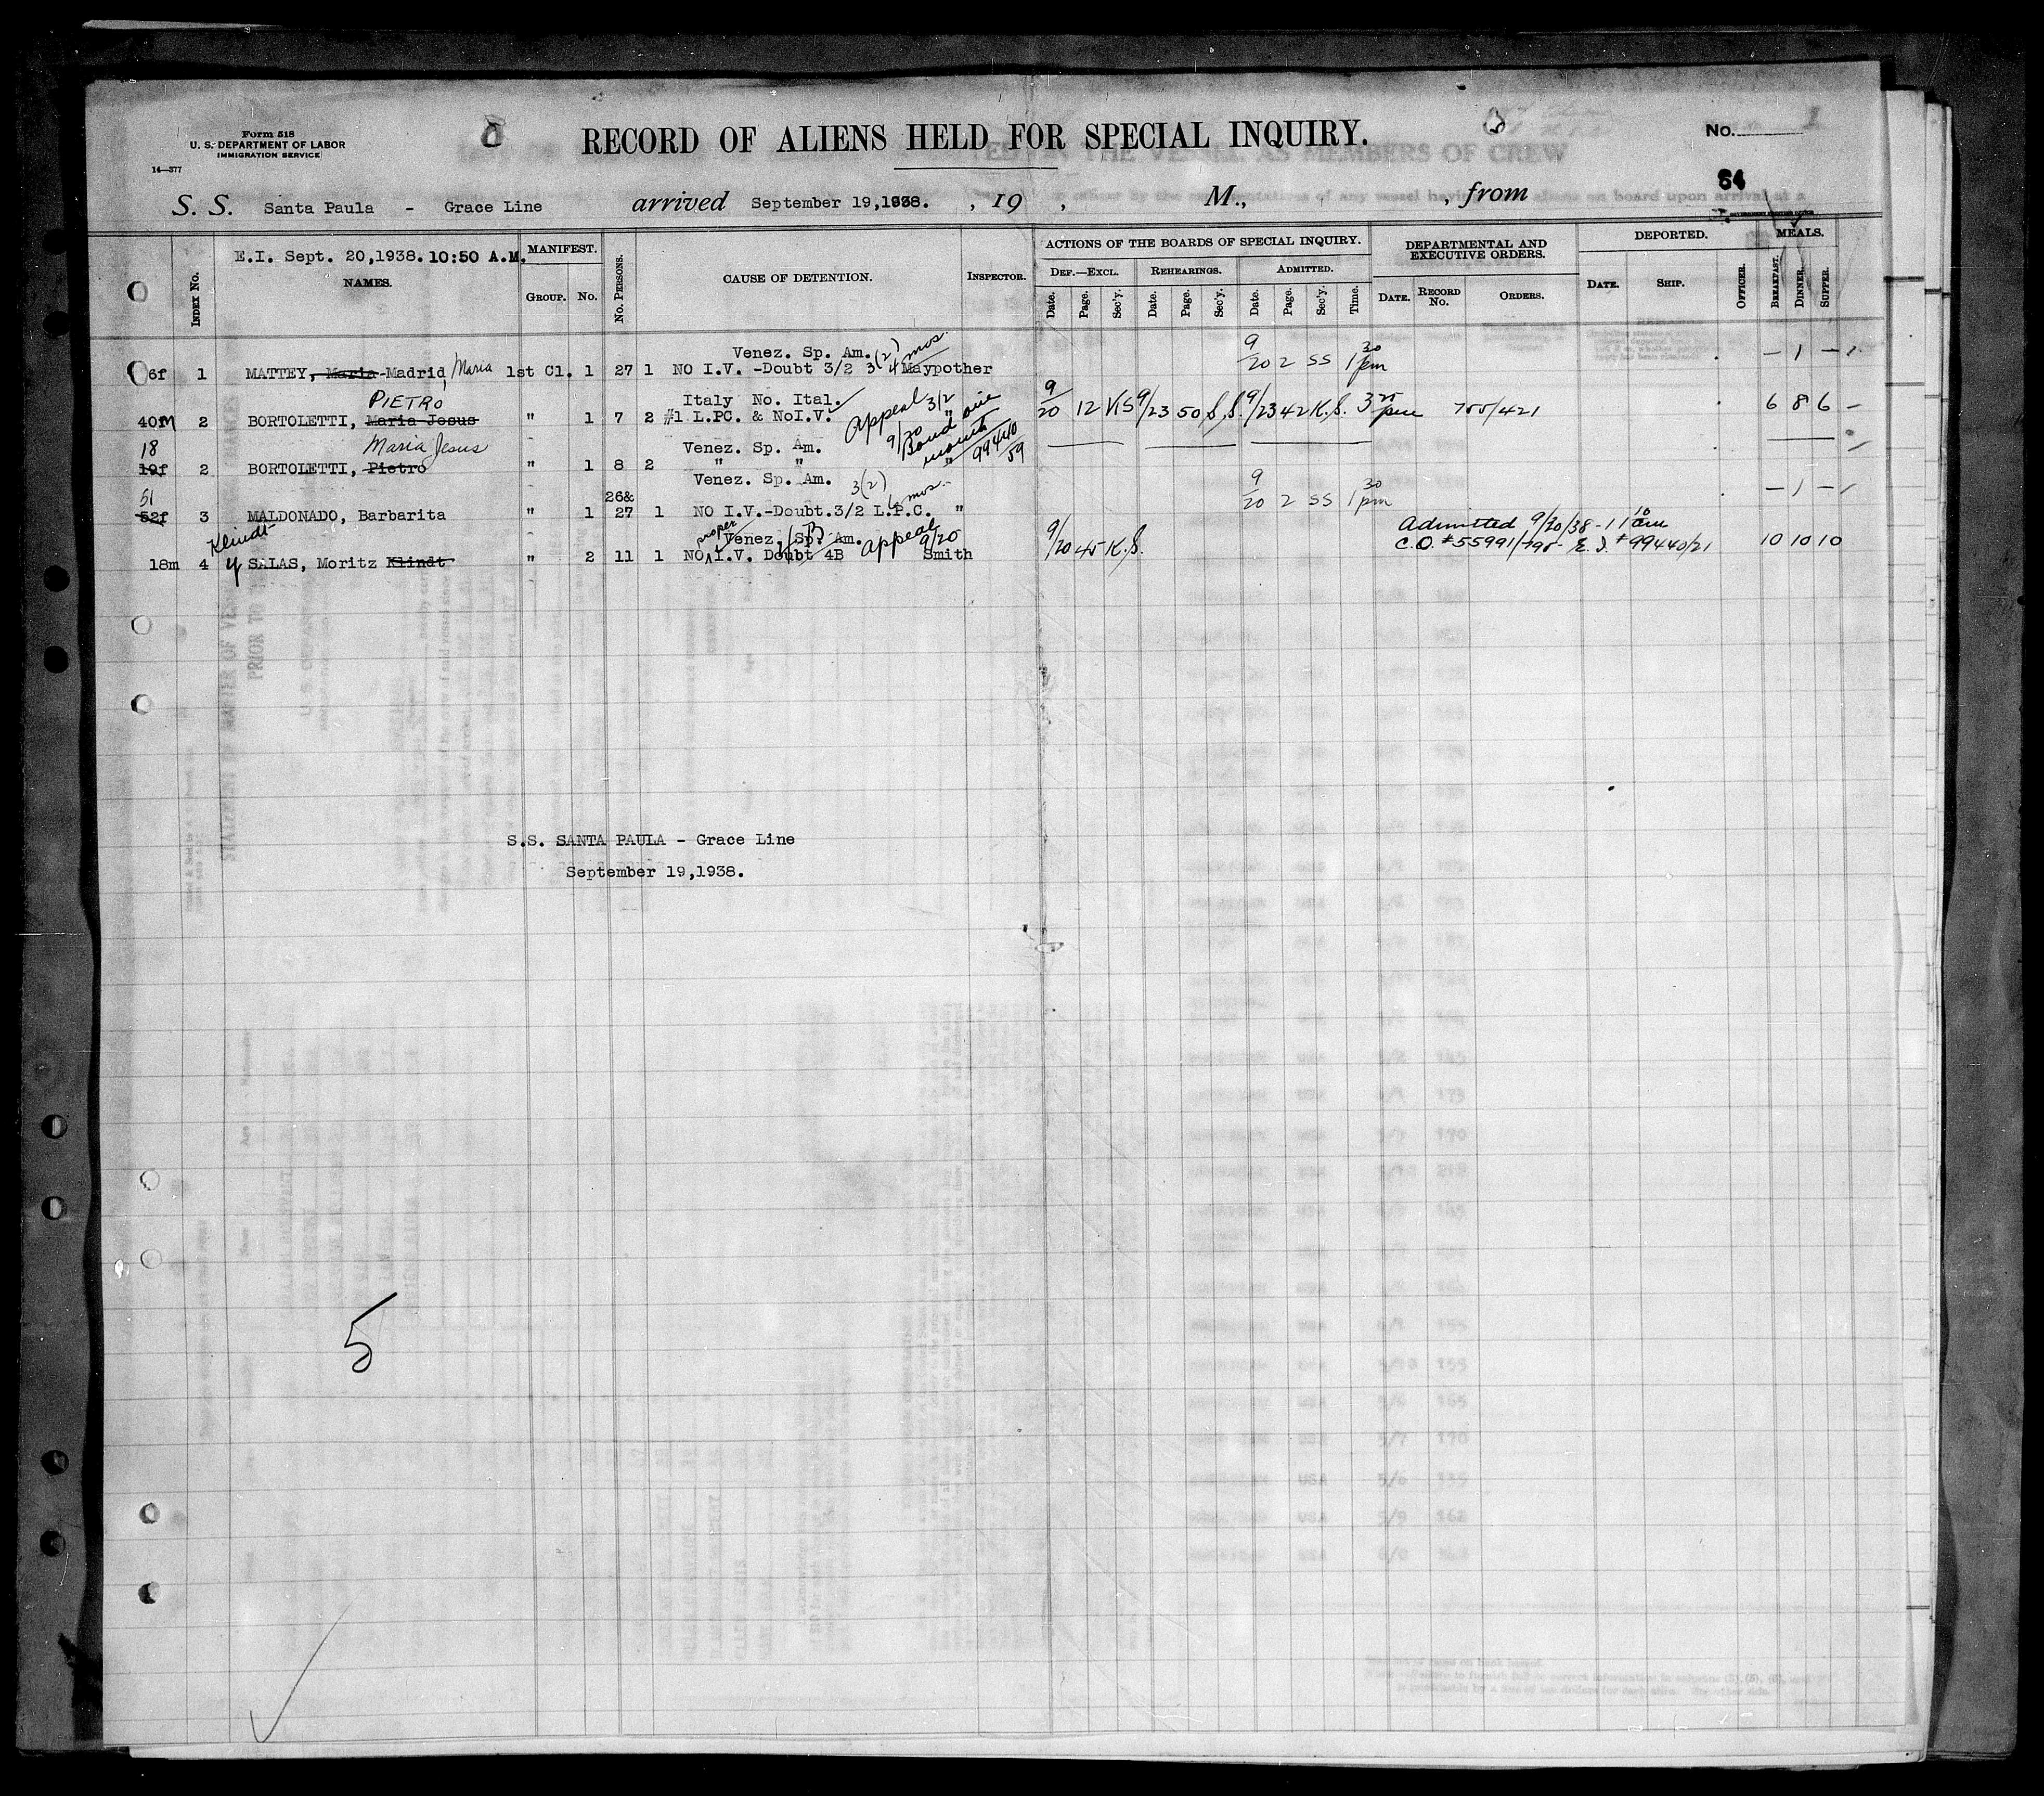 Form 518
U. S. DEPARTMENT OF LABOR
IMMIGRATION SERVICE
14—377
RECORD OF ALIENS HELD FOR SPECIAL INQUIRY.
No. 1
64
S. S. Santa Paula - Grace Line arrived September 19,1938. , 19 , M., , from
E.I. Sept. 20,1938. 10:50 A.M.
INDEX No.
NAMES.
MANIFEST.
GROUP. No.
No. PERSONS.
CAUSE OF DETENTION.
INSPECTOR.
ACTIONS OF THE BOARDS OF SPECIAL INQUIRY.
DEF.—EXCL. REHEARINGS. ADMITTED.
Date. Page. Sec'y. Date. Page. Sec'y. Date. Page. Sec'y. Time.
DEPARTMENTAL AND EXECUTIVE ORDERS.
DATE. RECORD No. ORDERS.
DEPORTED.
DATE. SHIP. OFFICER.
MEALS.
BREAKFAST. DINNER. SUPPER.
Venez. Sp. Am. (2) mos.
6f 1 MATTEY, Maria Madrid, Maria 1st Cl. 1 27 1 NO I.V. -Doubt 3/2 3 4 Maypother 9/20 2 SS 1 30 pm – 1 –
PIETRO Italy No. Ital.
40M 2 BORTOLETTI, Maria Jesus " 1 7 2 #1 L.PC. & No I.V. Appeal 9/20 3/2 Bond one month 99440/59 " 9/20 12 KS 9/23 50 S.S. 9/23 42 K.S. 3 25 pm 755/421 6 8 6 –
18 Maria Jesus Venez. Sp. Am.
19f 2 BORTOLETTI, Pietro " 1 8 2 " " "
51 26& Venez. Sp. Am. 3(2) 6 mos.
52f 3 MALDONADO, Barbarita " 1 27 1 NO I.V.-Doubt.3/2 L.P.C. " 9/20 2 SS 1 30 pm – 1 –
Klindt proper Venez. Sp. Am. Appeal 9/20 Admitted 9/30/38 - 11 10 am
18m 4 y SALAS, Moritz Klindt " 2 11 1 NO I.V. Doubt 4B Smith 9/20 45 K.S. C.O. #55991/795 - E.I. #99440/21 10 10 10
S.S. SANTA PAULA - Grace Line
September 19,1938.
5